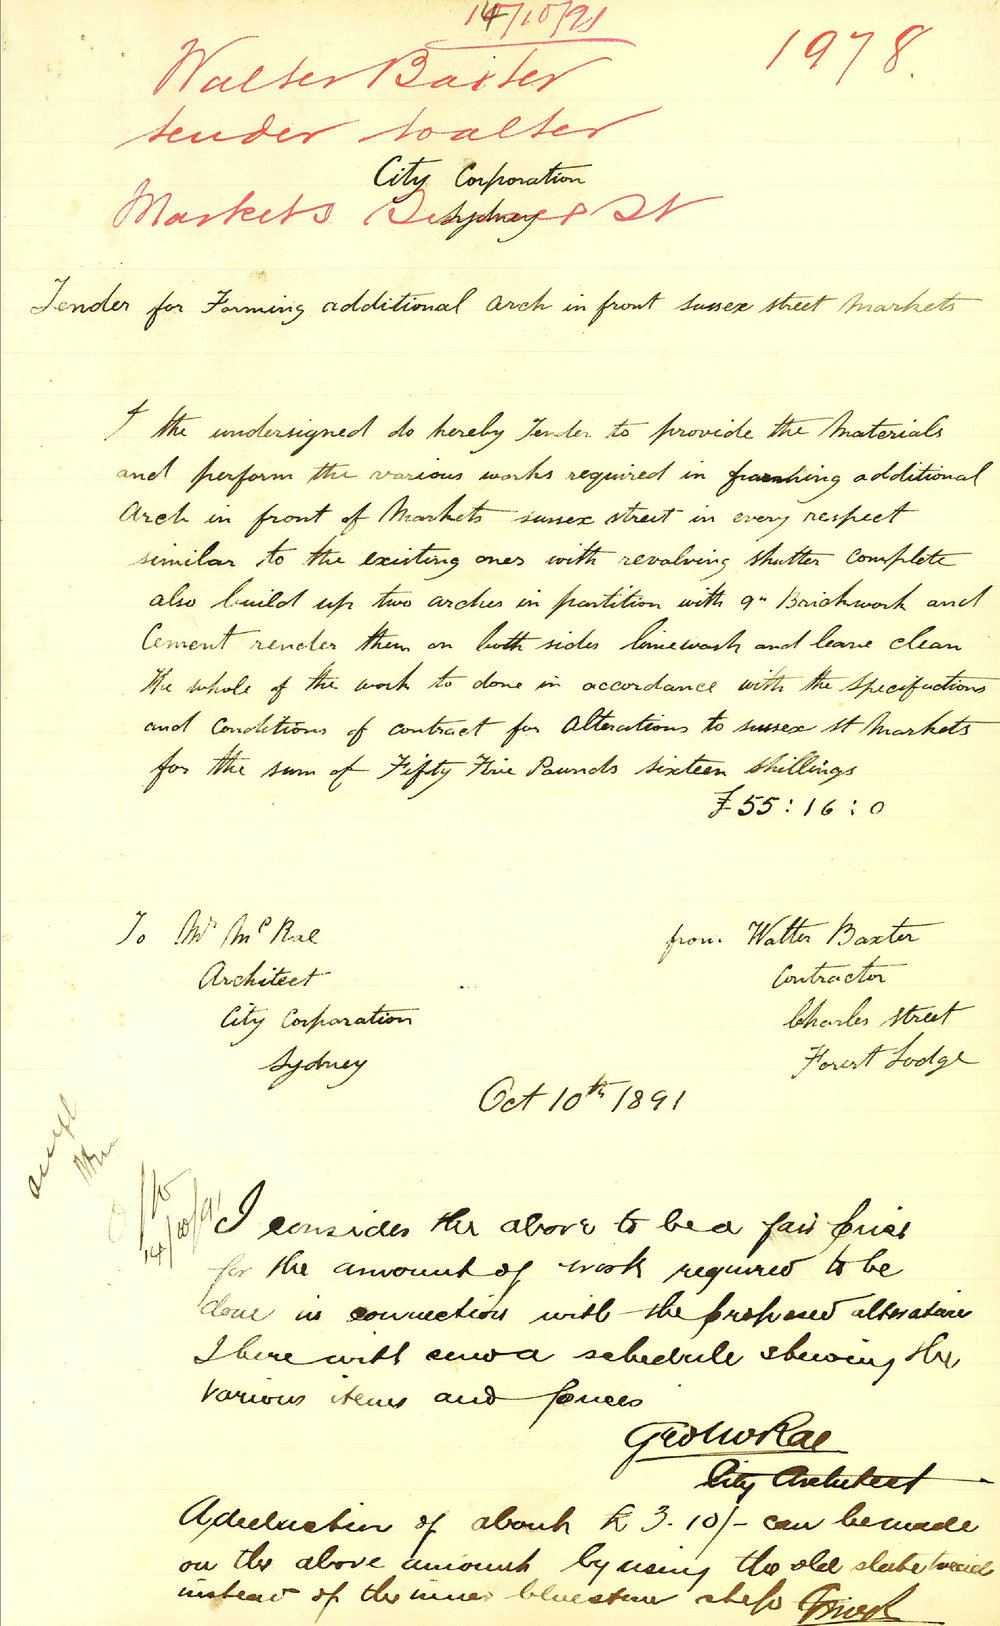 14/10/91
1978.
Walter Baxter
tender
City Corporation
Sydney
Markets St
Tender for Forming additional Arch in front Sussex Street Markets
I the undersigned do hereby Tender to provide the Materials
and perform the various works required in additional
Arch in front of Markets Sussex Street in every respect
similar to the existing ones with revolving shutter complete
also build up two arches in partition with 9" Brickwork and
Cement render them on both sides limewash and leave clean
the whole of the work to done in accordance with the Specifactions
and Conditions of contract for Alterations to Sussex St Markets
for the sum of Fifty Five Pounds sixteen shillings
£55:16:0
To Mr McRae
Architect
City Corporation
Sydney
from Walter Baxter
Contractor
Charles Street
Forest Lodge
Oct 10th 1891
14/10/91
I consider the above to be a fair price
for the amount of work required to be
done in connection with the proposed alterations
I herewith send a schedule shewing the
various items and prices
Geo McRae
City Architect
A deduction of about £3.10/- can be made
on the above amount by using the old slate treads
instead of the inner bluestone steps